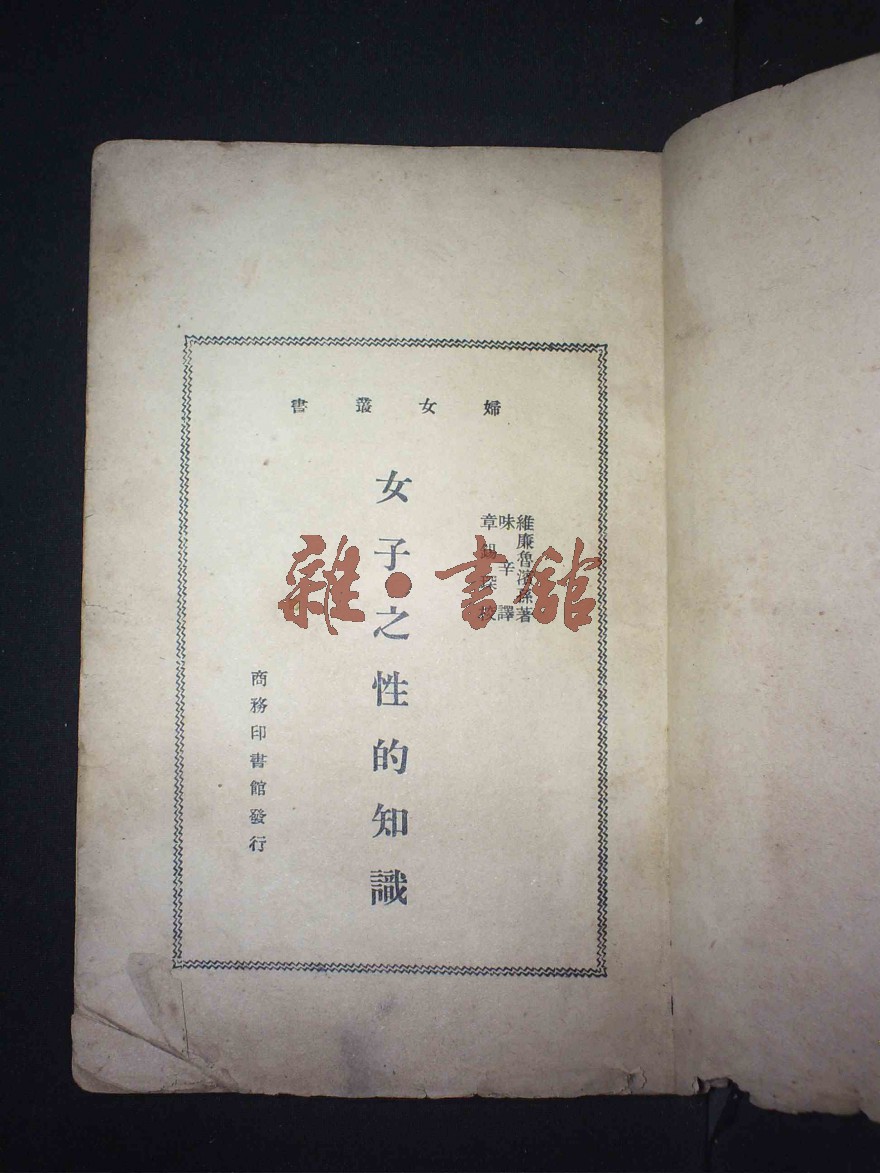 婦女叢書
維廉魯濱孫著
味辛譯
章錫琛校
女子之性的知識
商務印書館發行
雜·書館